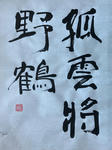 孤雲將
野鶴